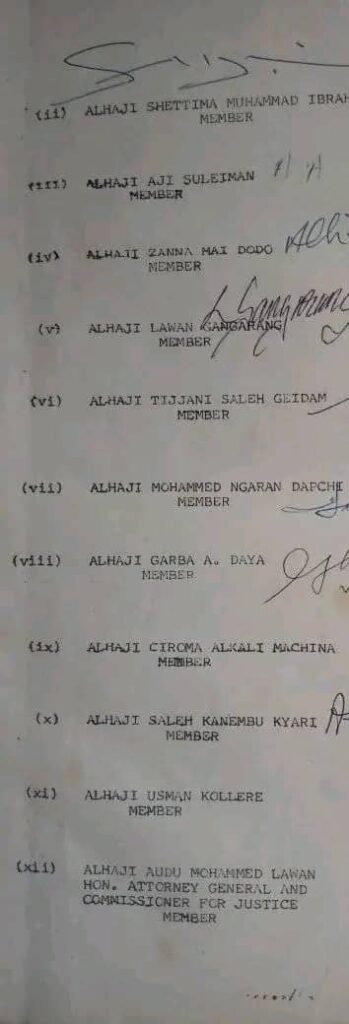 (ii) ALHAJI SHETTIMA MUHAMMAD IBRAH
MEMBER
(iii) ALHAJI AJI SULEIMAN
MEMBER
(iv) ALHAJI ZANNA MAI DODO
MEMBER
(v) ALHAJI LAWAN GANGARANG
MEMBER
(vi) ALHAJI TIJJANI SALEH GEIDAM
MEMBER
(vii) ALHAJI MOHAMMED NGARAN DAPCHI
MEMBER
(viii) ALHAJI GARBA A. DAYA
MEMBER
(ix) ALHAJI CIROMA ALKALI MACHINA
MEMBER
(x) ALHAJI SALEH KANEMBU KYARI
MEMBER
(xi) ALHAJI USMAN KOLLERE
MEMBER
(xii) ALHAJI AUDU MOHAMMED LAWAN
HON. ATTORNEY GENERAL AND
COMMISSIONER FOR JUSTICE
MEMBER